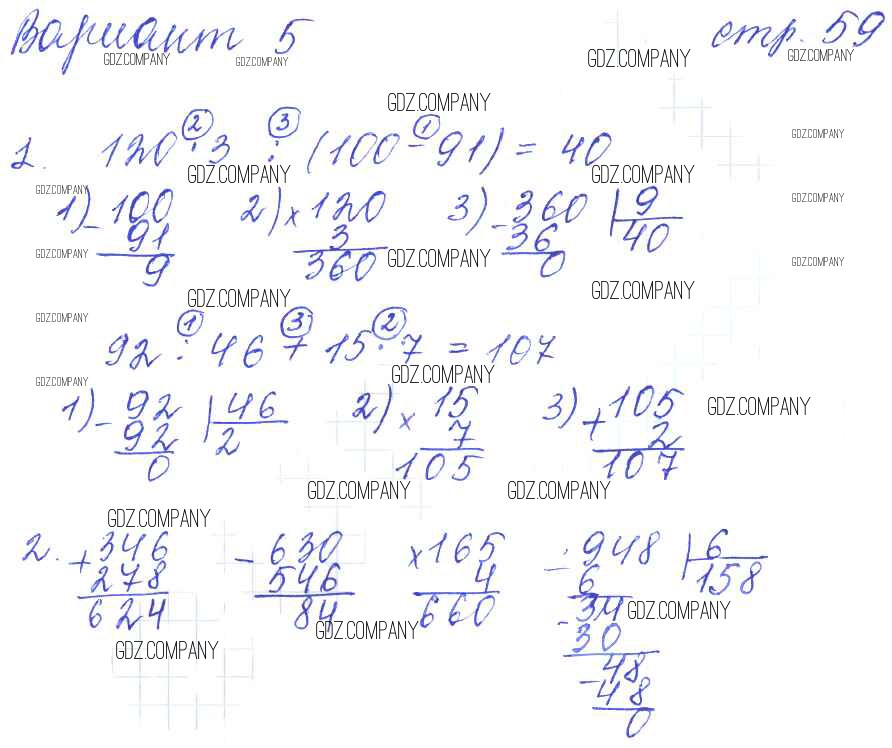 Вариант 5 стр. 59
GDZ.COMPANY GDZ.COMPANY GDZ.COMPANY GDZ.COMPANY
GDZ.COMPANY
② ③ ①
1. 120 · 3 : (100 - 91) = 40
GDZ.COMPANY
GDZ.COMPANY GDZ.COMPANY
GDZ.COMPANY GDZ.COMPANY
1) - 100 2) × 120 3) - 360 | 9
91 3 36 40
9 360 0
GDZ.COMPANY GDZ.COMPANY GDZ.COMPANY
GDZ.COMPANY GDZ.COMPANY
GDZ.COMPANY
① ③ ②
92 : 46 + 15 · 7 = 107
GDZ.COMPANY GDZ.COMPANY
1) - 92 | 46 2) × 15 3) + 105
GDZ.COMPANY
92 2 7 2
0 105 107
GDZ.COMPANY GDZ.COMPANY
GDZ.COMPANY
2. + 346 - 630 × 165 - 948 | 6
278 546 4 6 158
624 84 660 - 34
GDZ.COMPANY GDZ.COMPANY
30
GDZ.COMPANY
- 48
48
0